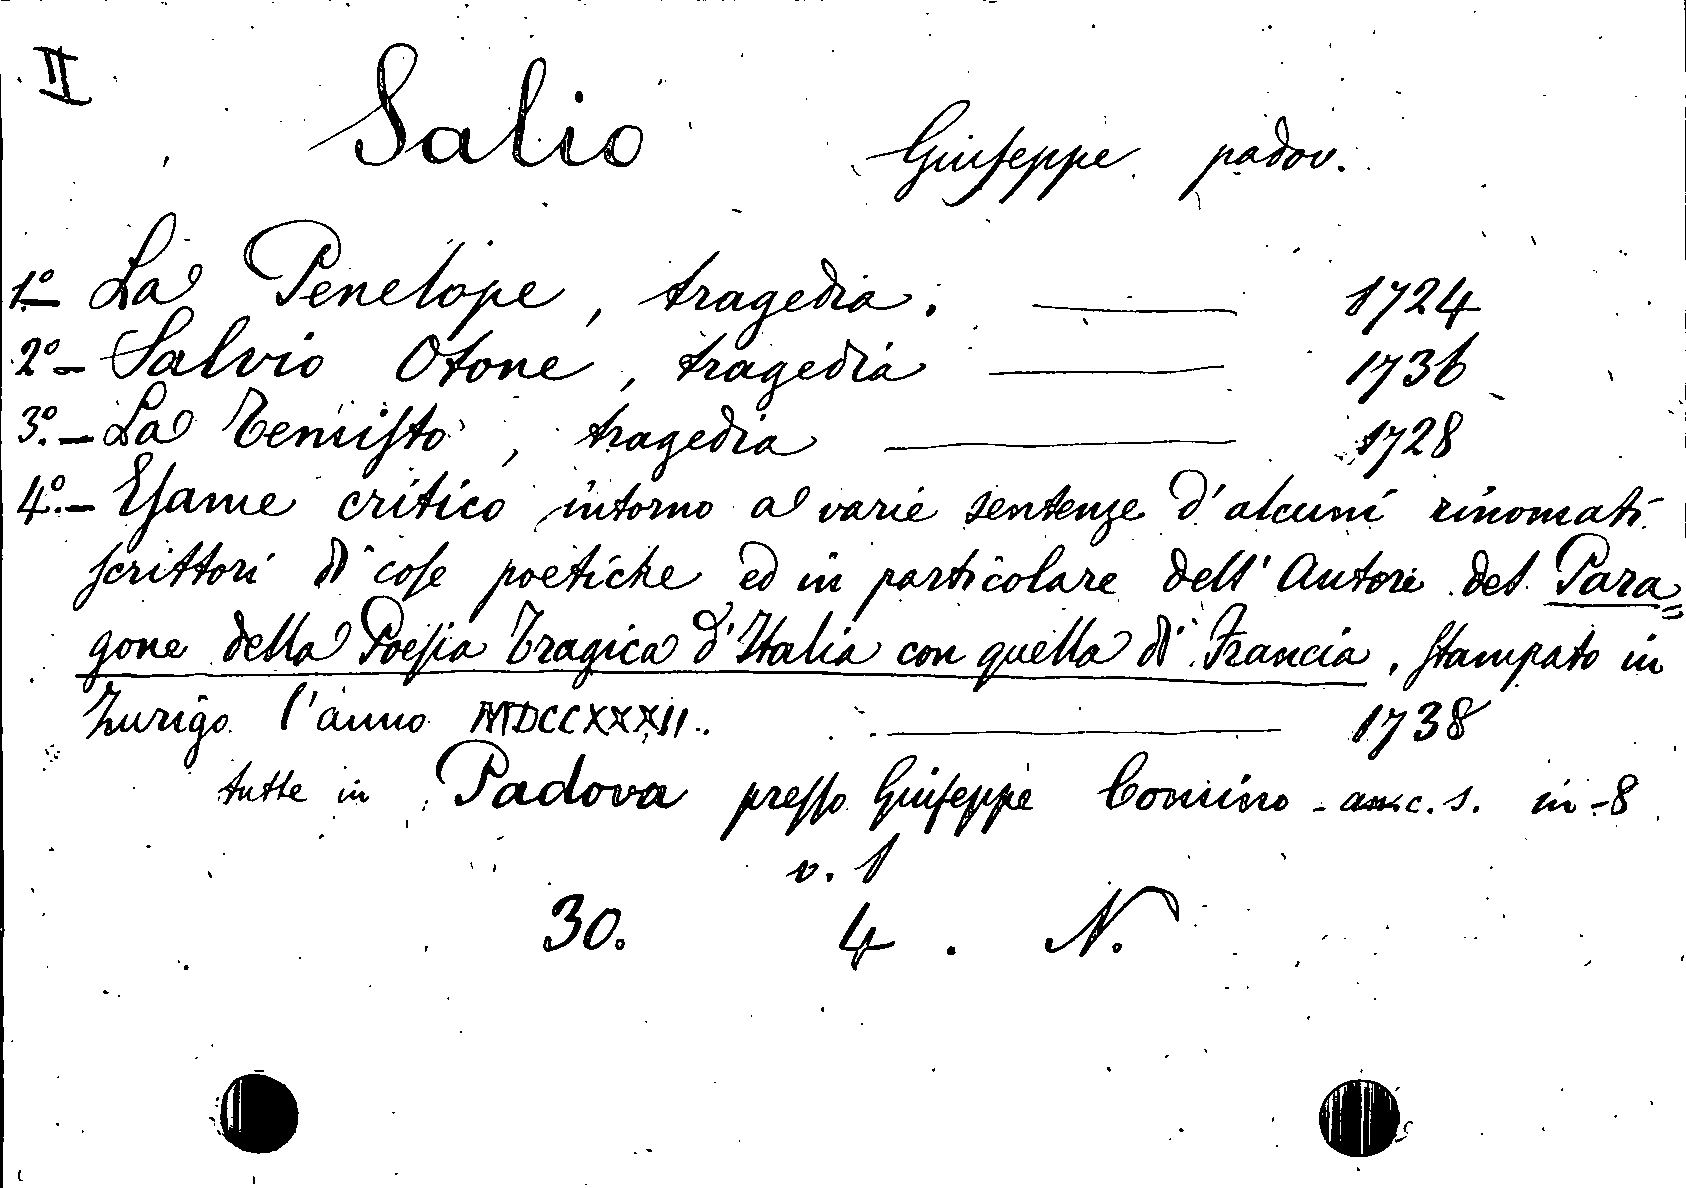 II
Salio Giuseppe padov.
1.º – La Penelope, tragedia. 1724
2.º – Salvio Otone, tragedia 1736
3.º – La Temisto, tragedia 1728
4.º – Esame critico intorno a varie sentenze d'alcuni rinomati
scrittori di cose poetiche ed in particolare dell' Autore del Para=
gone della Poesia Tragica d'Italia con quella di Francia, stampato in
Zurigo l'anno MDCCXXXII. 1738
tutte in Padova presso Giuseppe Comino - c. s. in-8
v. 1
30. 4. N.